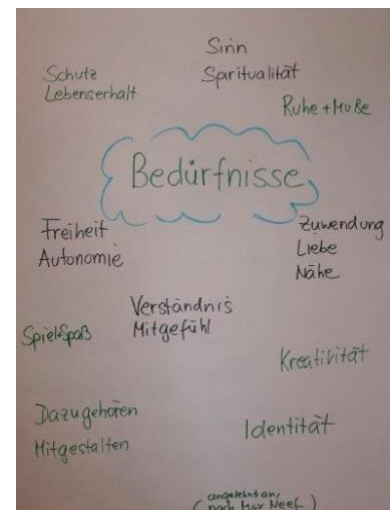 Sinn
Spiritualität
Schutz
Lebenserhalt
Ruhe + Muße
Bedürfnisse
Freiheit
Autonomie
Zuwendung
Liebe
Nähe
Verständnis
Mitgefühl
Spiel+Spaß
Kreativität
Dazugehören
Mitgestalten
Identität
(angelehnt an,
nach Max Neef)